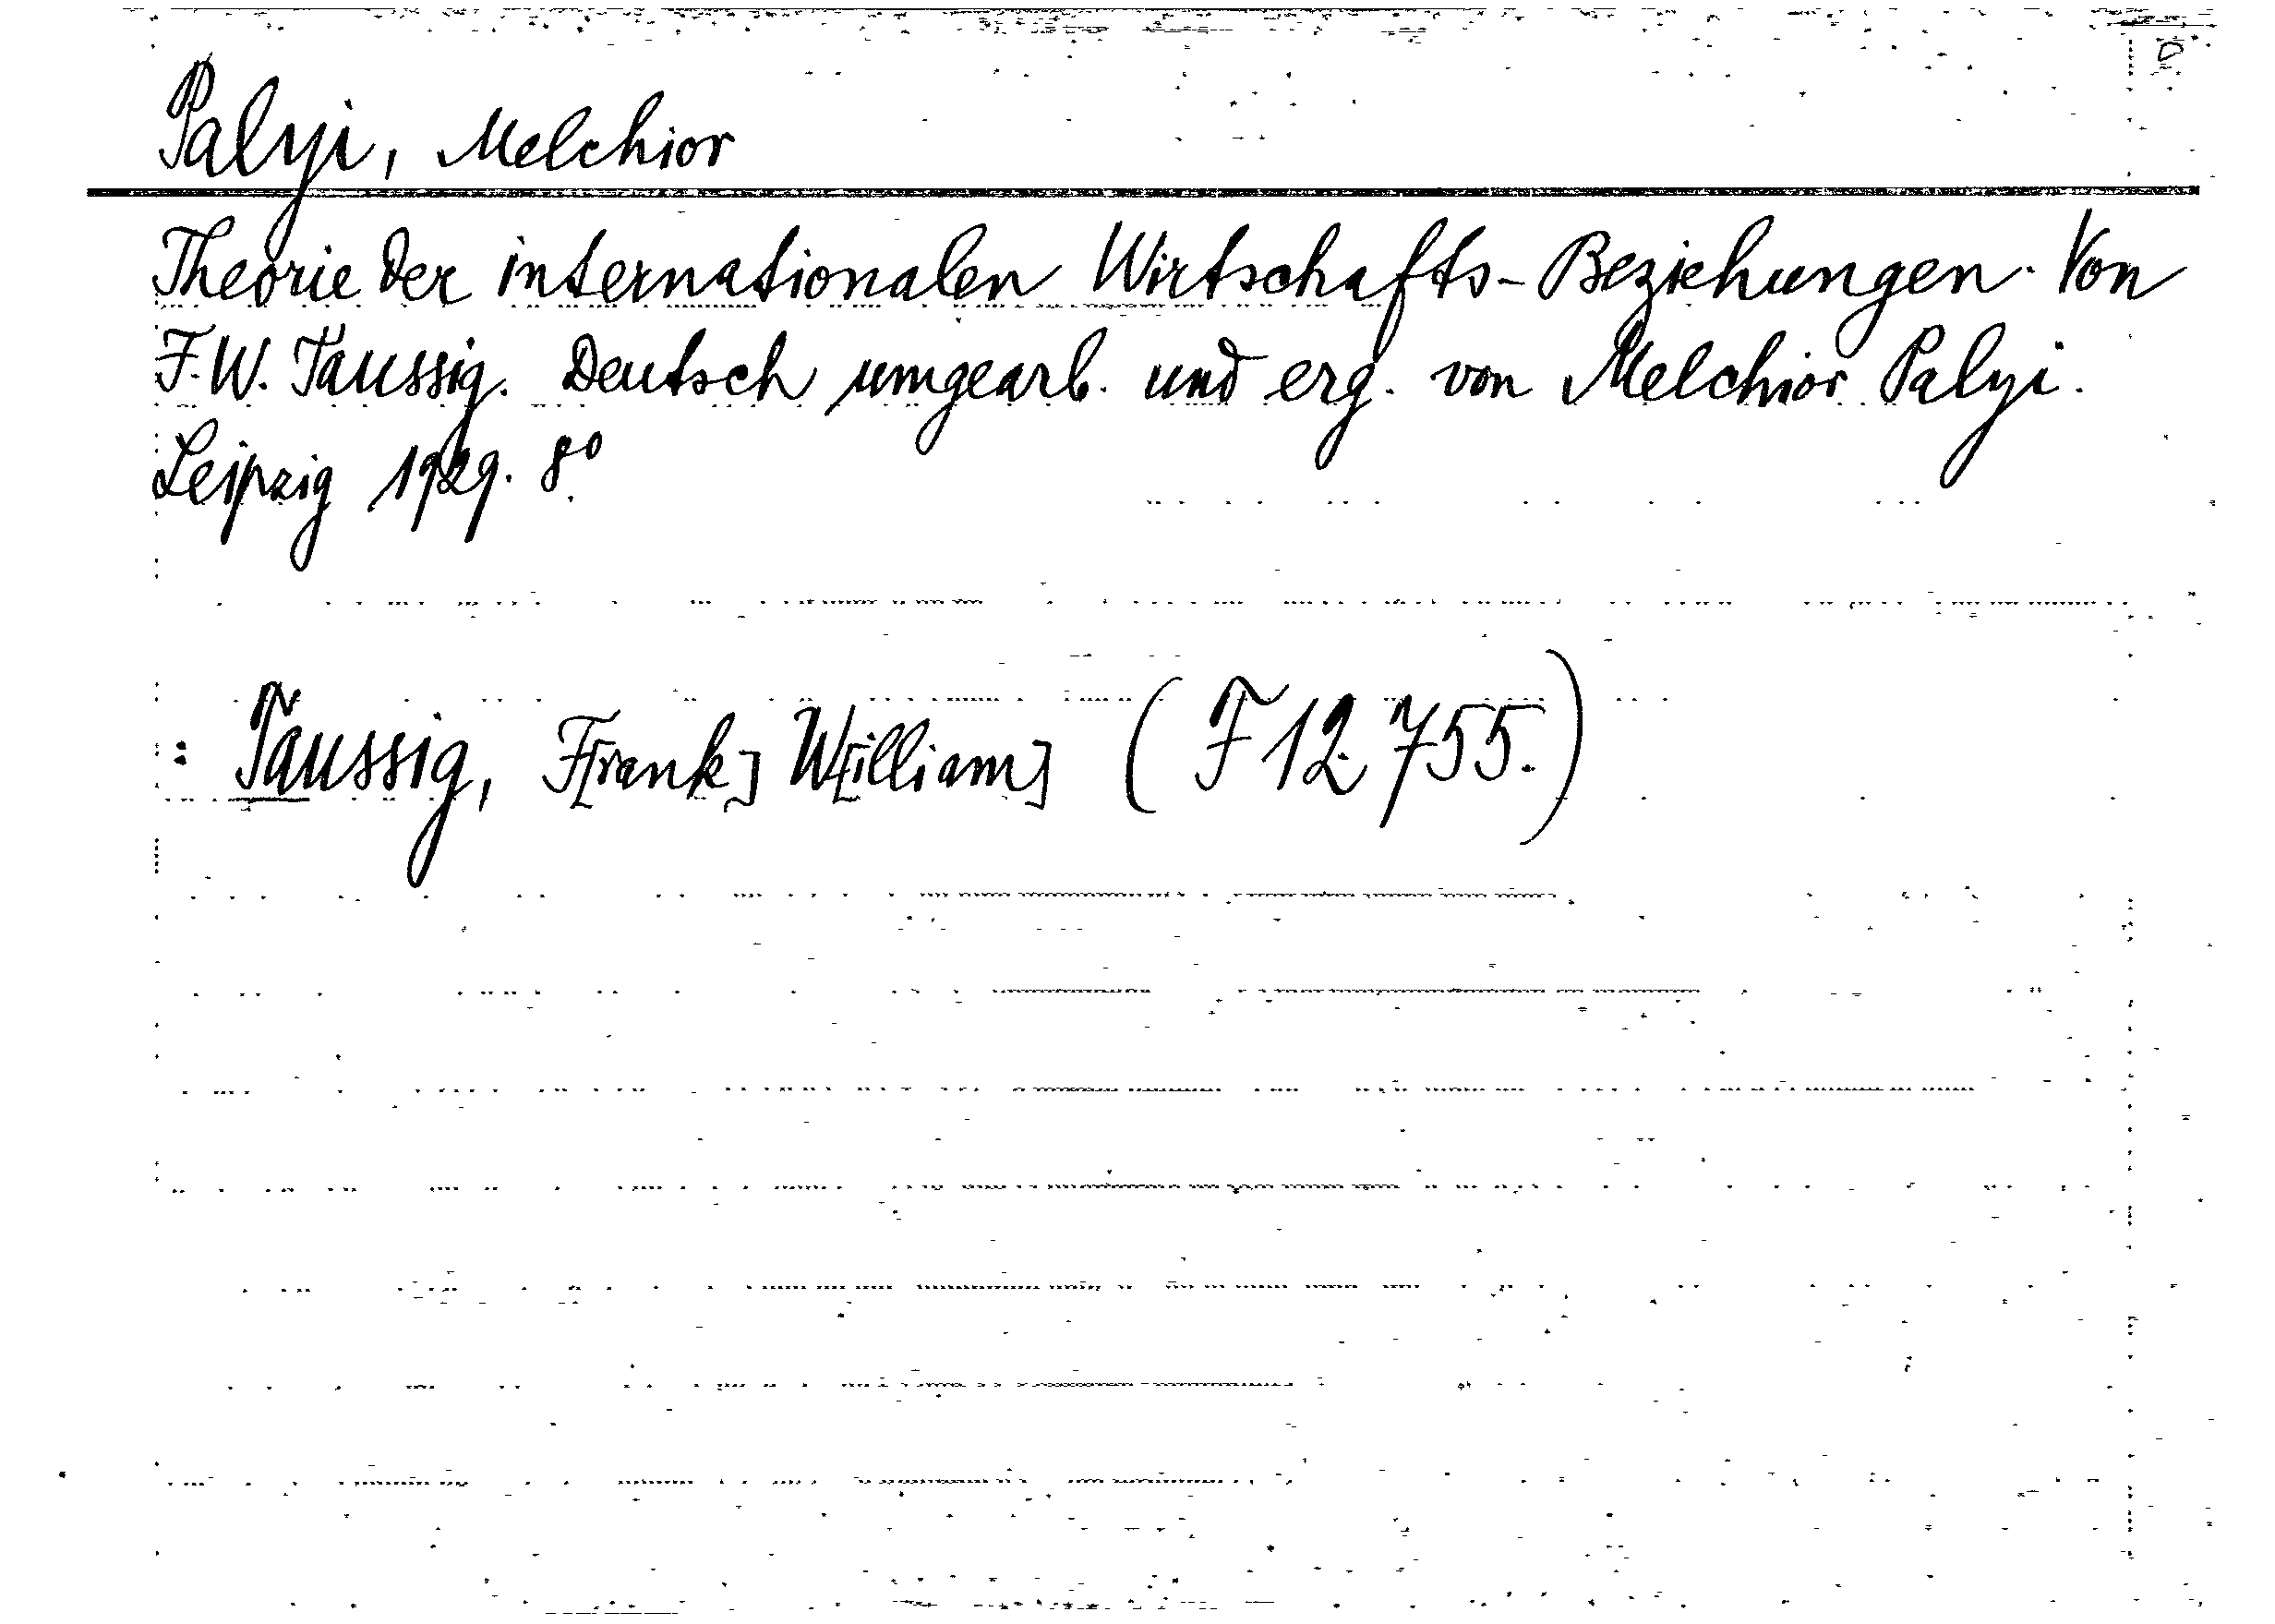 Palyi, Melchior
Theorie der internationalen Wirtschafts-Beziehungen. Von
F. W. Taussig. Deutsch umgearb. und erg. von Melchior Palyi.
Leipzig 1929. 8°.
: Taussig, F[rank] W[illiam] (F 12 755.)